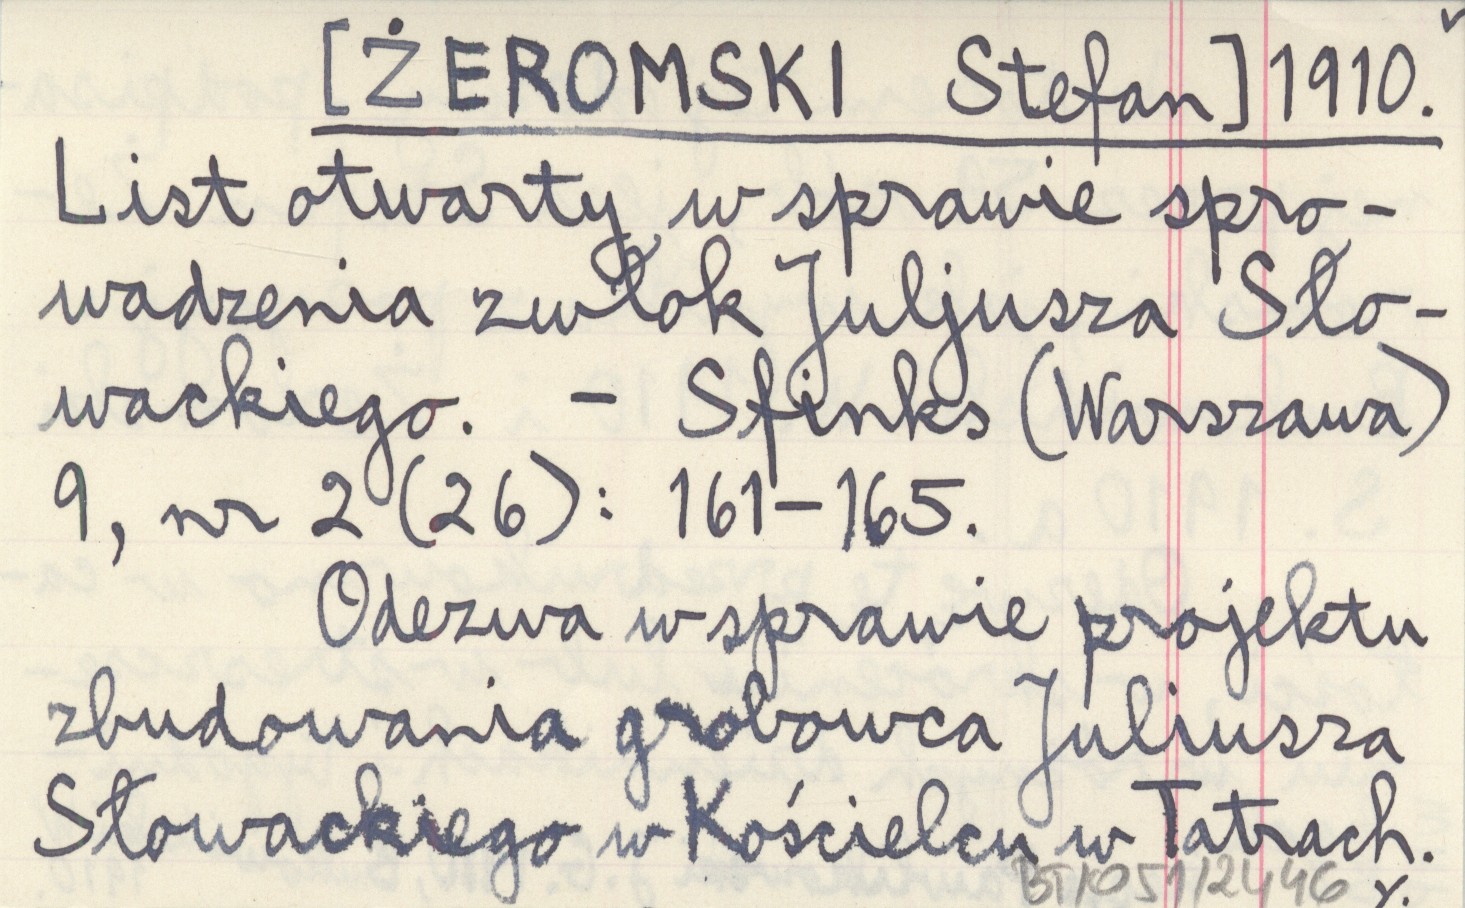 [ŻEROMSKI Stefan] 1910.
List otwarty w sprawie spro-
wadzenia zwłok Juljusza Sło-
wackiego. - Sfinks (Warszawa)
9, nr 2 (26): 161-165.
Odezwa w sprawie projektu
zbudowania grobowca Juliusza
Słowackiego w Kościelcu w Tatrach.
BT/051/2446 v.